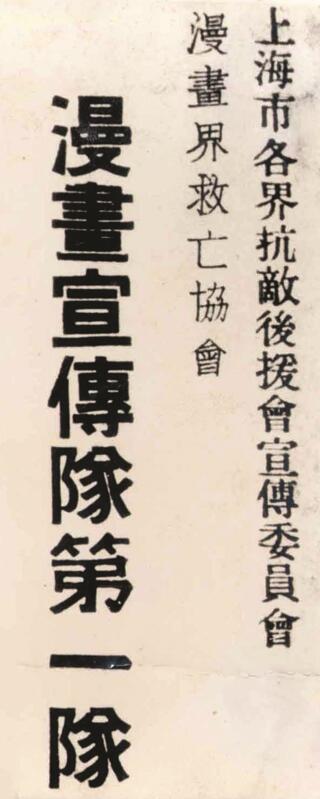 上海市各界抗敵後援會宣傳委員會
漫畫界救亡協會
漫畫宣傳隊第一隊